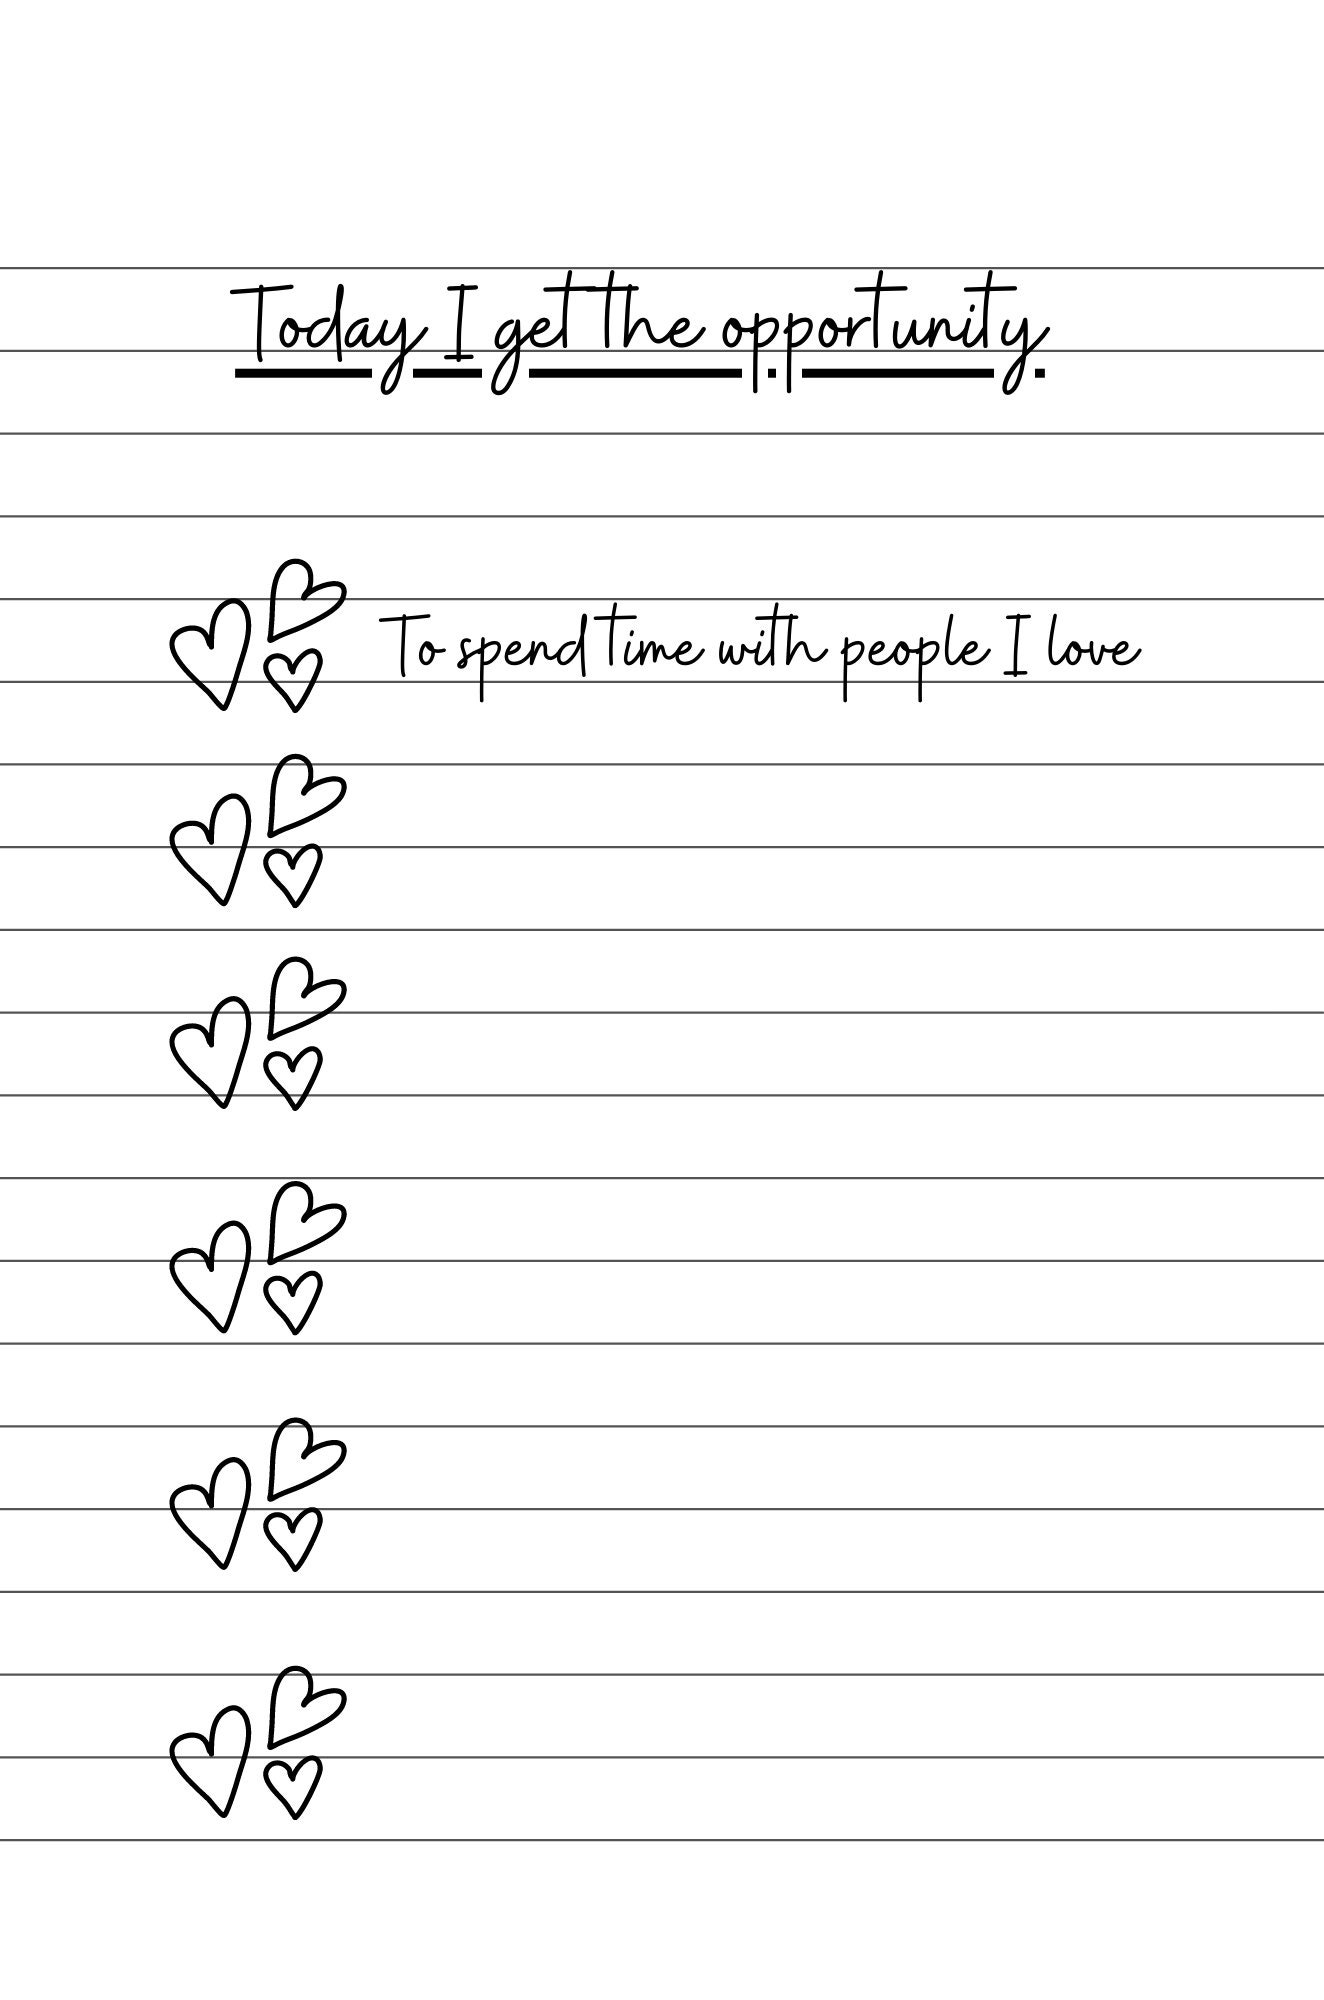 Today I get the opportunity.
To spend time with people I love